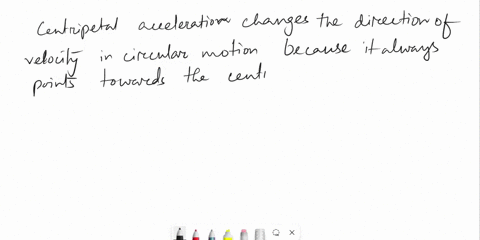 Centripetal acceleration changes the direction of
velocity in circular motion because it always
points towards the cent